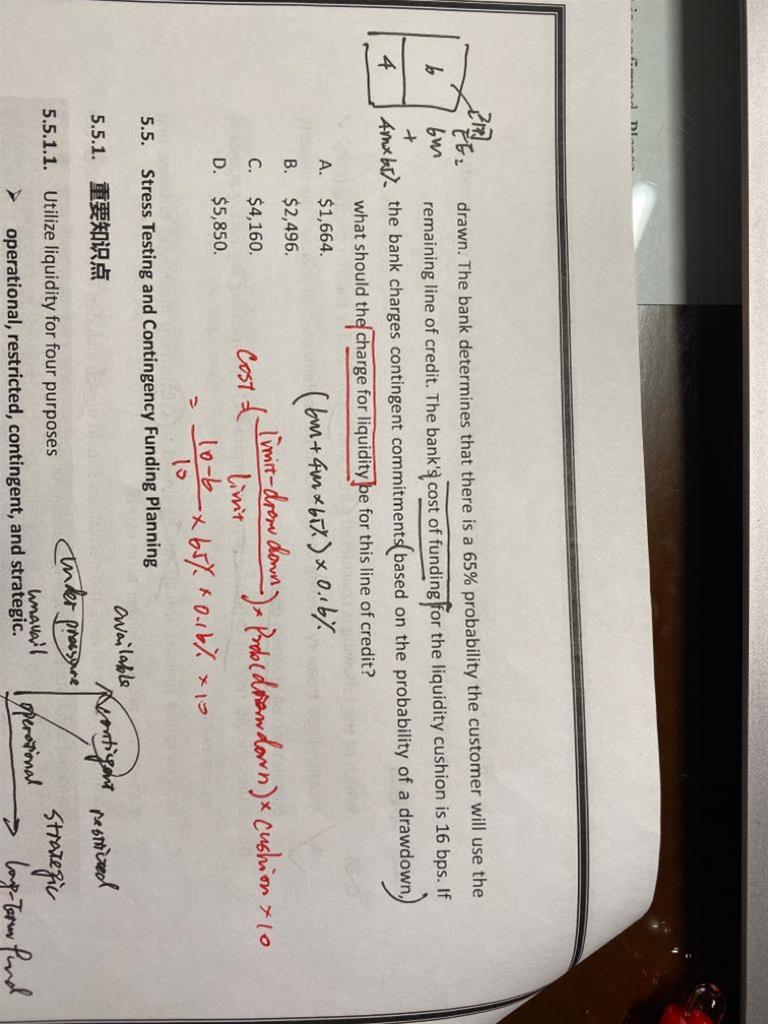 drawn. The bank determines that there is a 65% probability the customer will use the
remaining line of credit. The bank's cost of funding for the liquidity cushion is 16 bps. If
the bank charges contingent commitments (based on the probability of a drawdown,)
what should the charge for liquidity be for this line of credit?
6
4
6m
+
4m×65%
A. $1,664.
B. $2,496.
C. $4,160.
D. $5,850.
(6m+4m×65%)×0.16%
Cost = (limit-drawdown / limit) × Prob(drawdown) × cushion × 10
= 10-6 / 10 × 65% × 0.16% × 10
5.5. Stress Testing and Contingency Funding Planning
5.5.1. 重要知识点
5.5.1.1. Utilize liquidity for four purposes
➢ operational, restricted, contingent, and strategic.
available
contigent
restricted
under pressure
unavail
operational
strategic
long-term fund